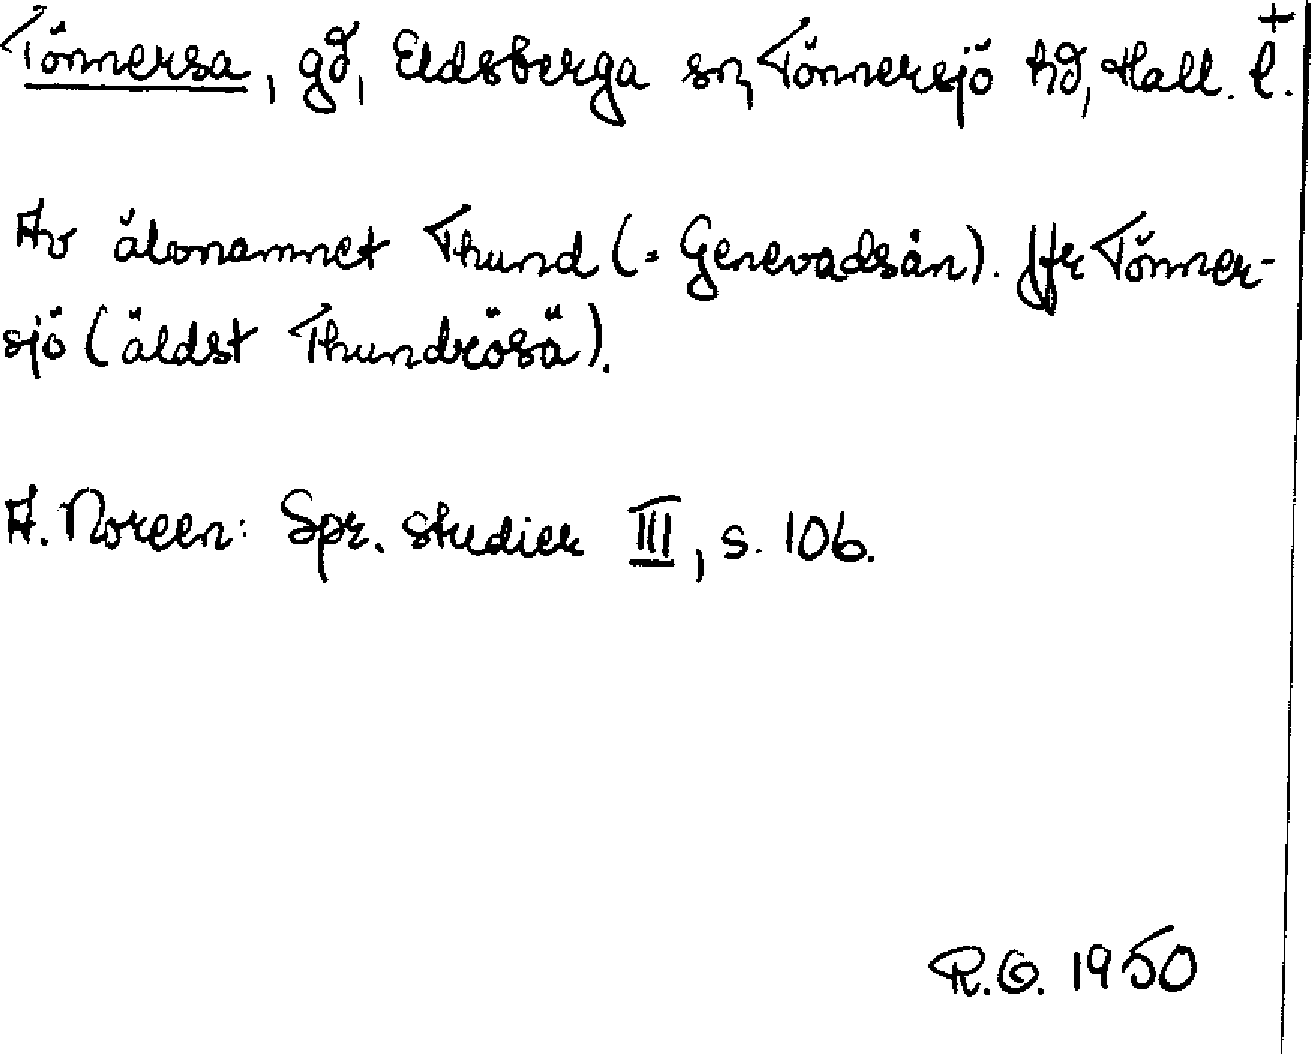 Tönnersa, gd, Eldsberga sn, Tönnersjö hd, Hall. l. +
Av älvnamnet Thund (= Genevadsån). Jfr Tönner-
sjö (äldst Thundrösä).
A. Noreen: Spr. studier III, s. 106.
R.G. 1950